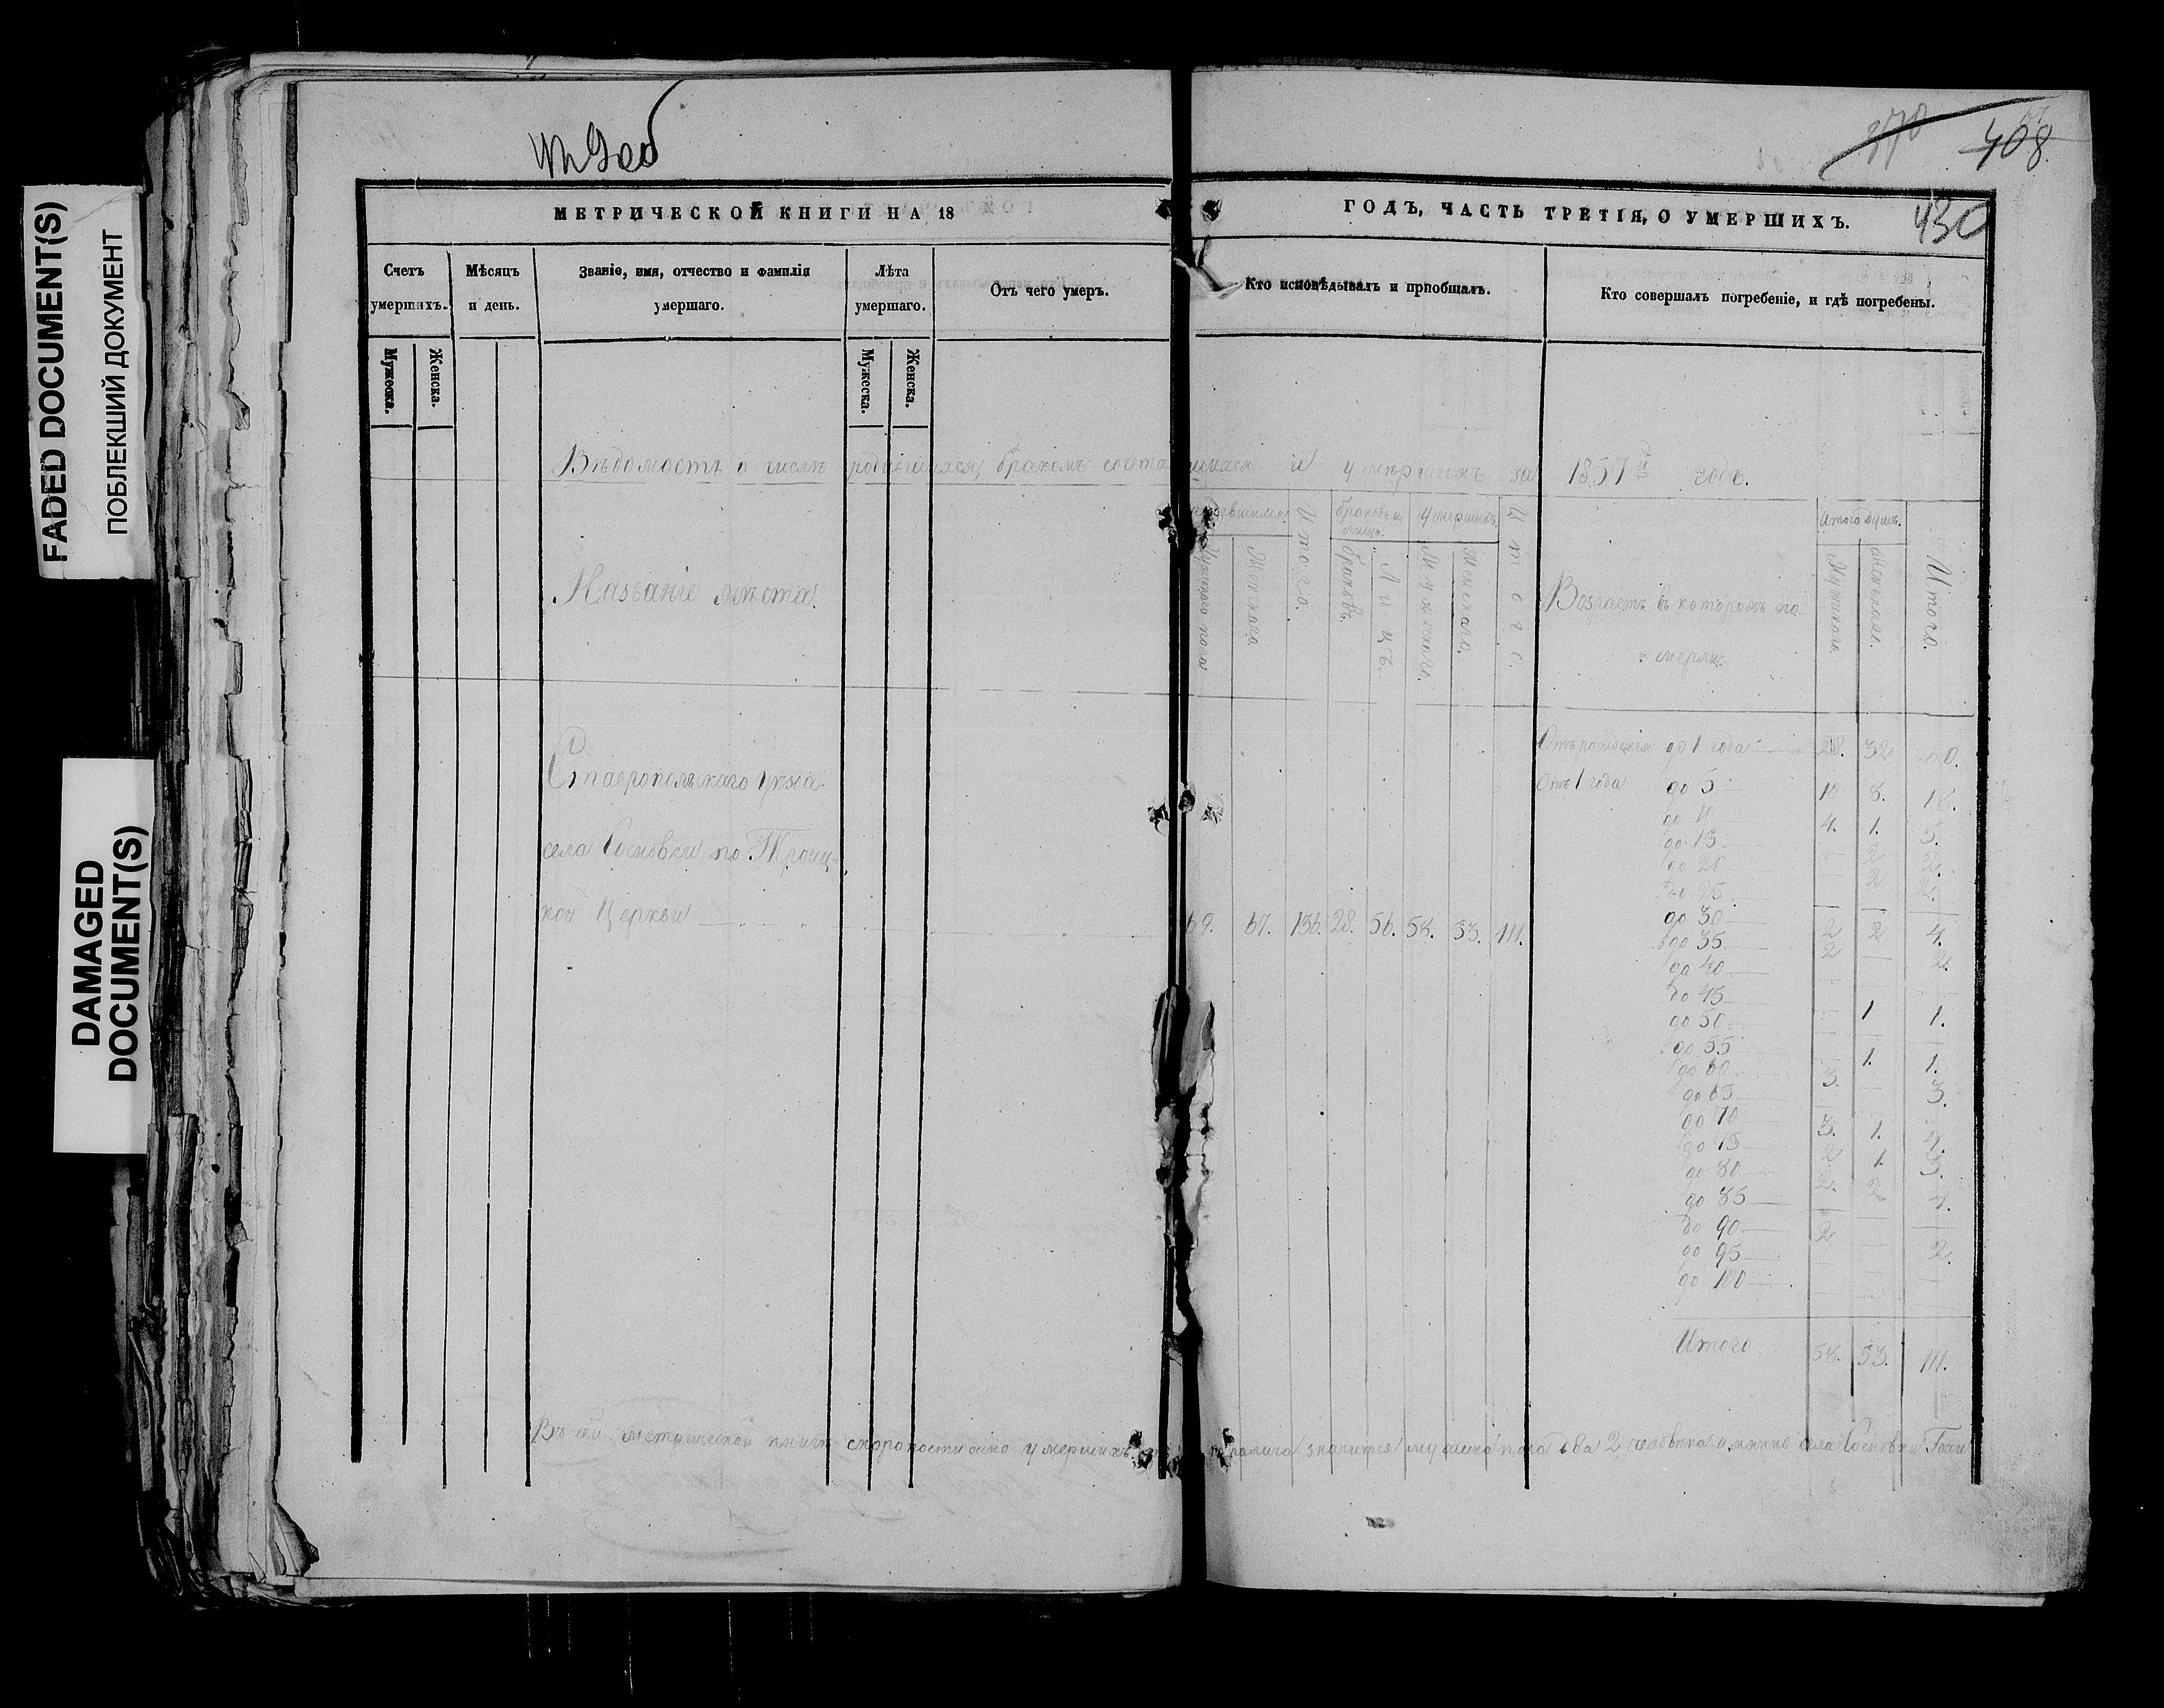 FADED DOCUMENT(S)
ПОБЛЕКШИЙ ДОКУМЕНТ
DAMAGED
DOCUMENT(S)
370
408
430
МЕТРИЧЕСКОЙ КНИГИ НА 18
ГОДЪ, ЧАСТЬ ТРЕТІЯ, О УМЕРШИХЪ.
Счетъ умершихъ.
Мѣсяцъ и день.
Званіе, имя, отчество и фамилія умершаго.
Лѣта умершаго.
Отъ чего умеръ.
Кто исповѣдывалъ и пріобщалъ.
Кто совершалъ погребеніе, и гдѣ погребены.
Мужеска.
Женска.
Мужеска.
Женска.
Вѣдомость о числѣ родившихся, бракомъ сочетавшихся и умершихъ за 1857й годъ.
Названіе мѣста.
Мужескаго пола
Женскаго.
Итого.
браковъ.
Лицъ.
Умершихъ.
Мужескаго.
Женскаго.
Итого.
Возрастъ въ которомъ по
мерли.
Итого душъ.
Мужескаго.
Женскаго.
Итого.
Ставропольскаго уѣзда
села Сосновки по Троиц-
кой Церкви
69. 67. 136. 28. 56. 58. 53. 111.
Отъ рожденія до 1 года 28. 32
Отъ 1 года до 5 10 8. 18.
до 10 4. 1. 5.
до 15 2 2.
до 20 2 2.
до 25
до 30 2 2 4.
до 35 2 2.
до 40
до 45 1 1.
до 50
до 55 1. 1.
до 60 3. 3.
до 65
до 70 3. 1. 4.
до 75 2 1 3.
до 80 2. 2 4.
до 85
до 90 2 2.
до 95
до 100
Итого 58. 53. 111.
Въ сей метрической книгѣ скоропостижно умершихъ паралича значится мужеска пола два 2 человѣка именно села Сосновки